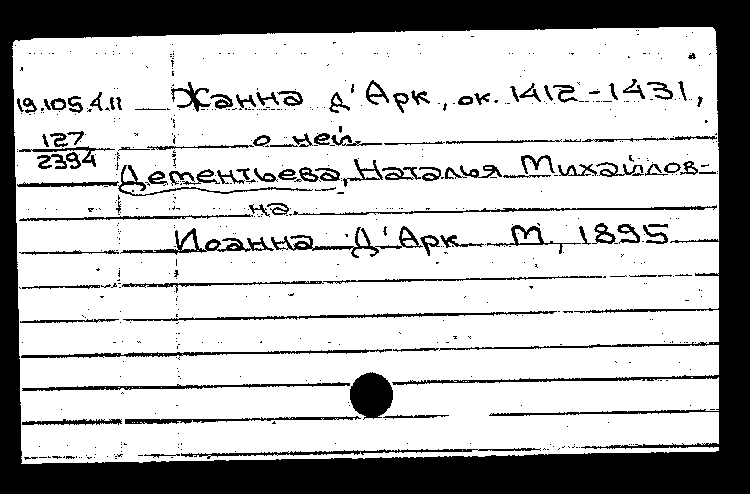 19.105.4.11 Жанна д'Арк, ок. 1412-1431,
127 о ней
2394
Дементьева, Наталья Михайлов-
на.
Иоанна Д'Арк М., 1895